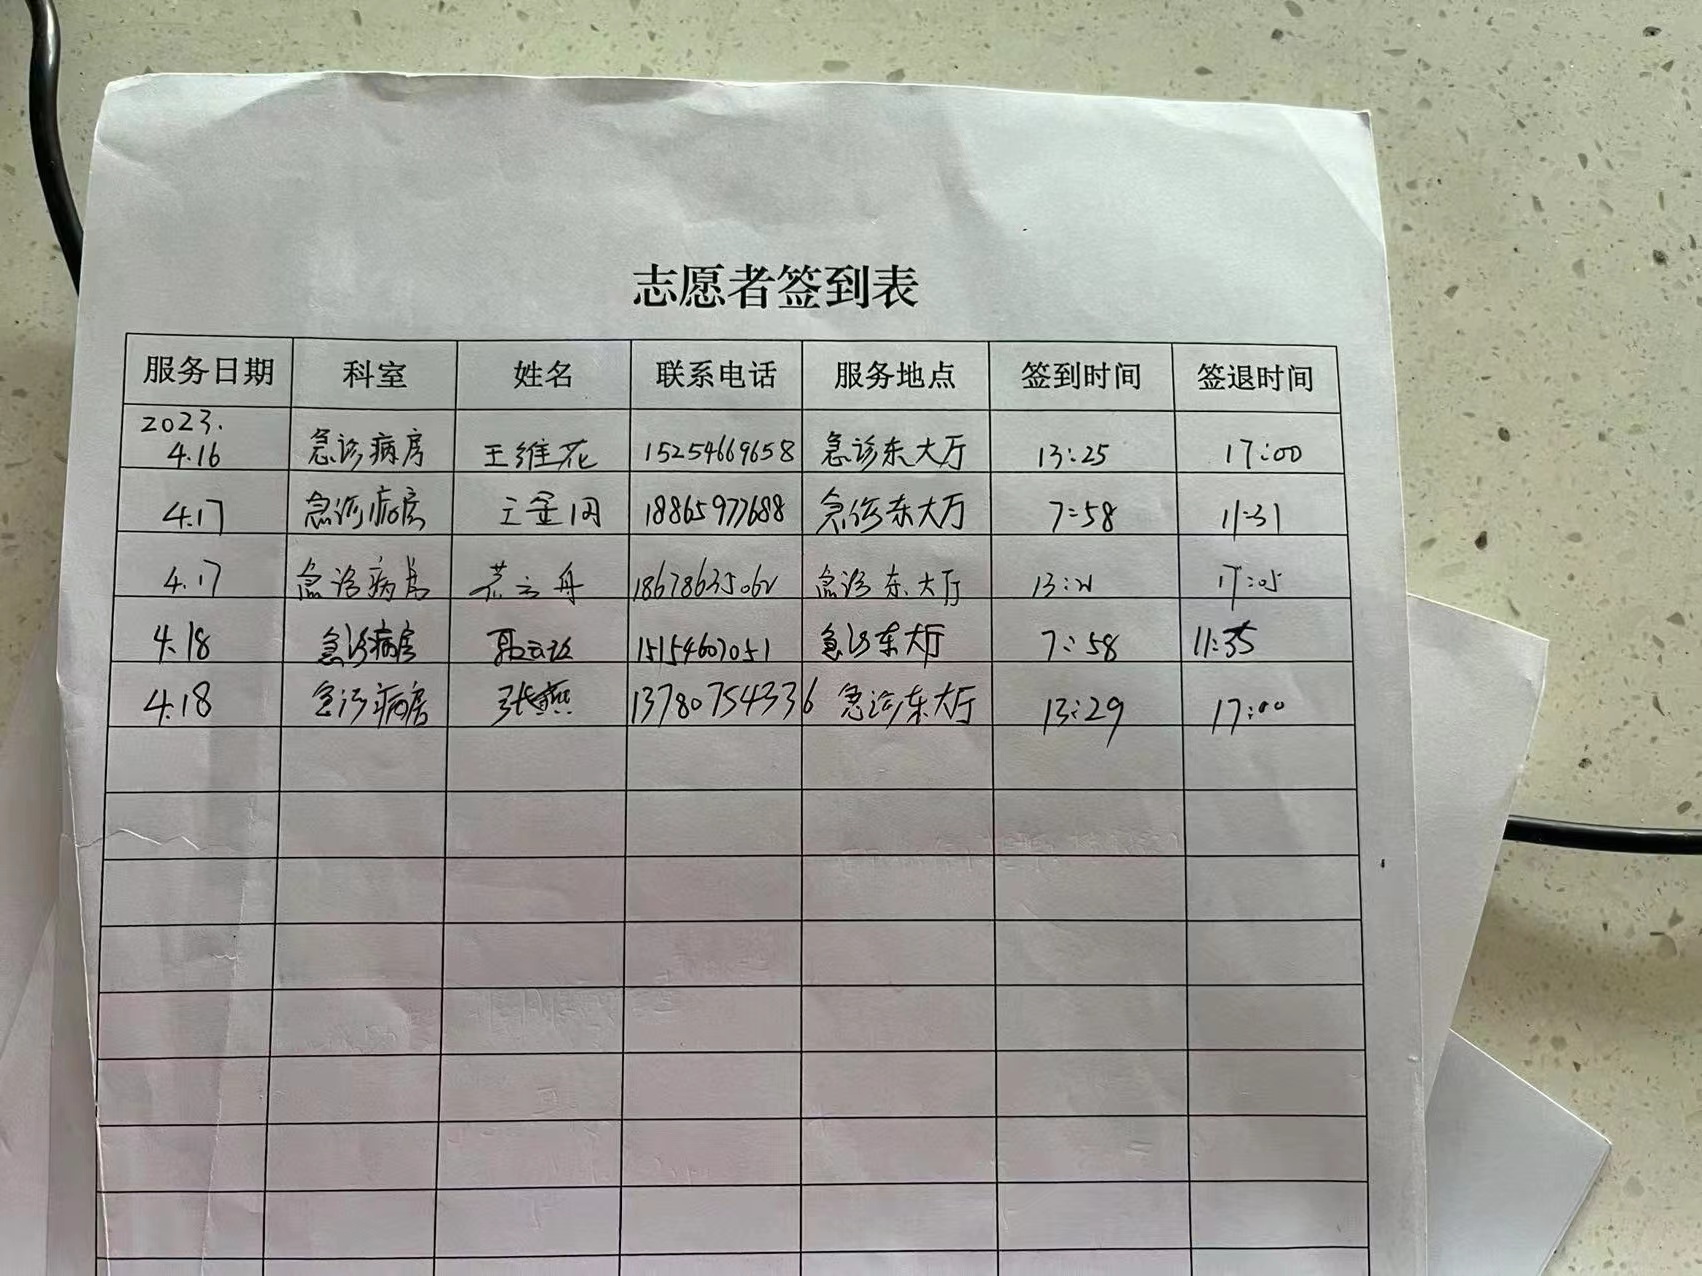 志愿者签到表
服务日期 科室 姓名 联系电话 服务地点 签到时间 签退时间
2023.
4.16 急诊病房 王维花 15254669658 急诊东大厅 13:25 17:00
4.17 急诊病房 18865977688 急诊东大厅 7:58 11:31
4.17 急诊病房 急诊东大厅 17:05
4.18 急诊病房 15154607051 急诊东大厅 7:58 11:35
4.18 急诊病房 张燕 13780754336 急诊东大厅 13:29 17:00